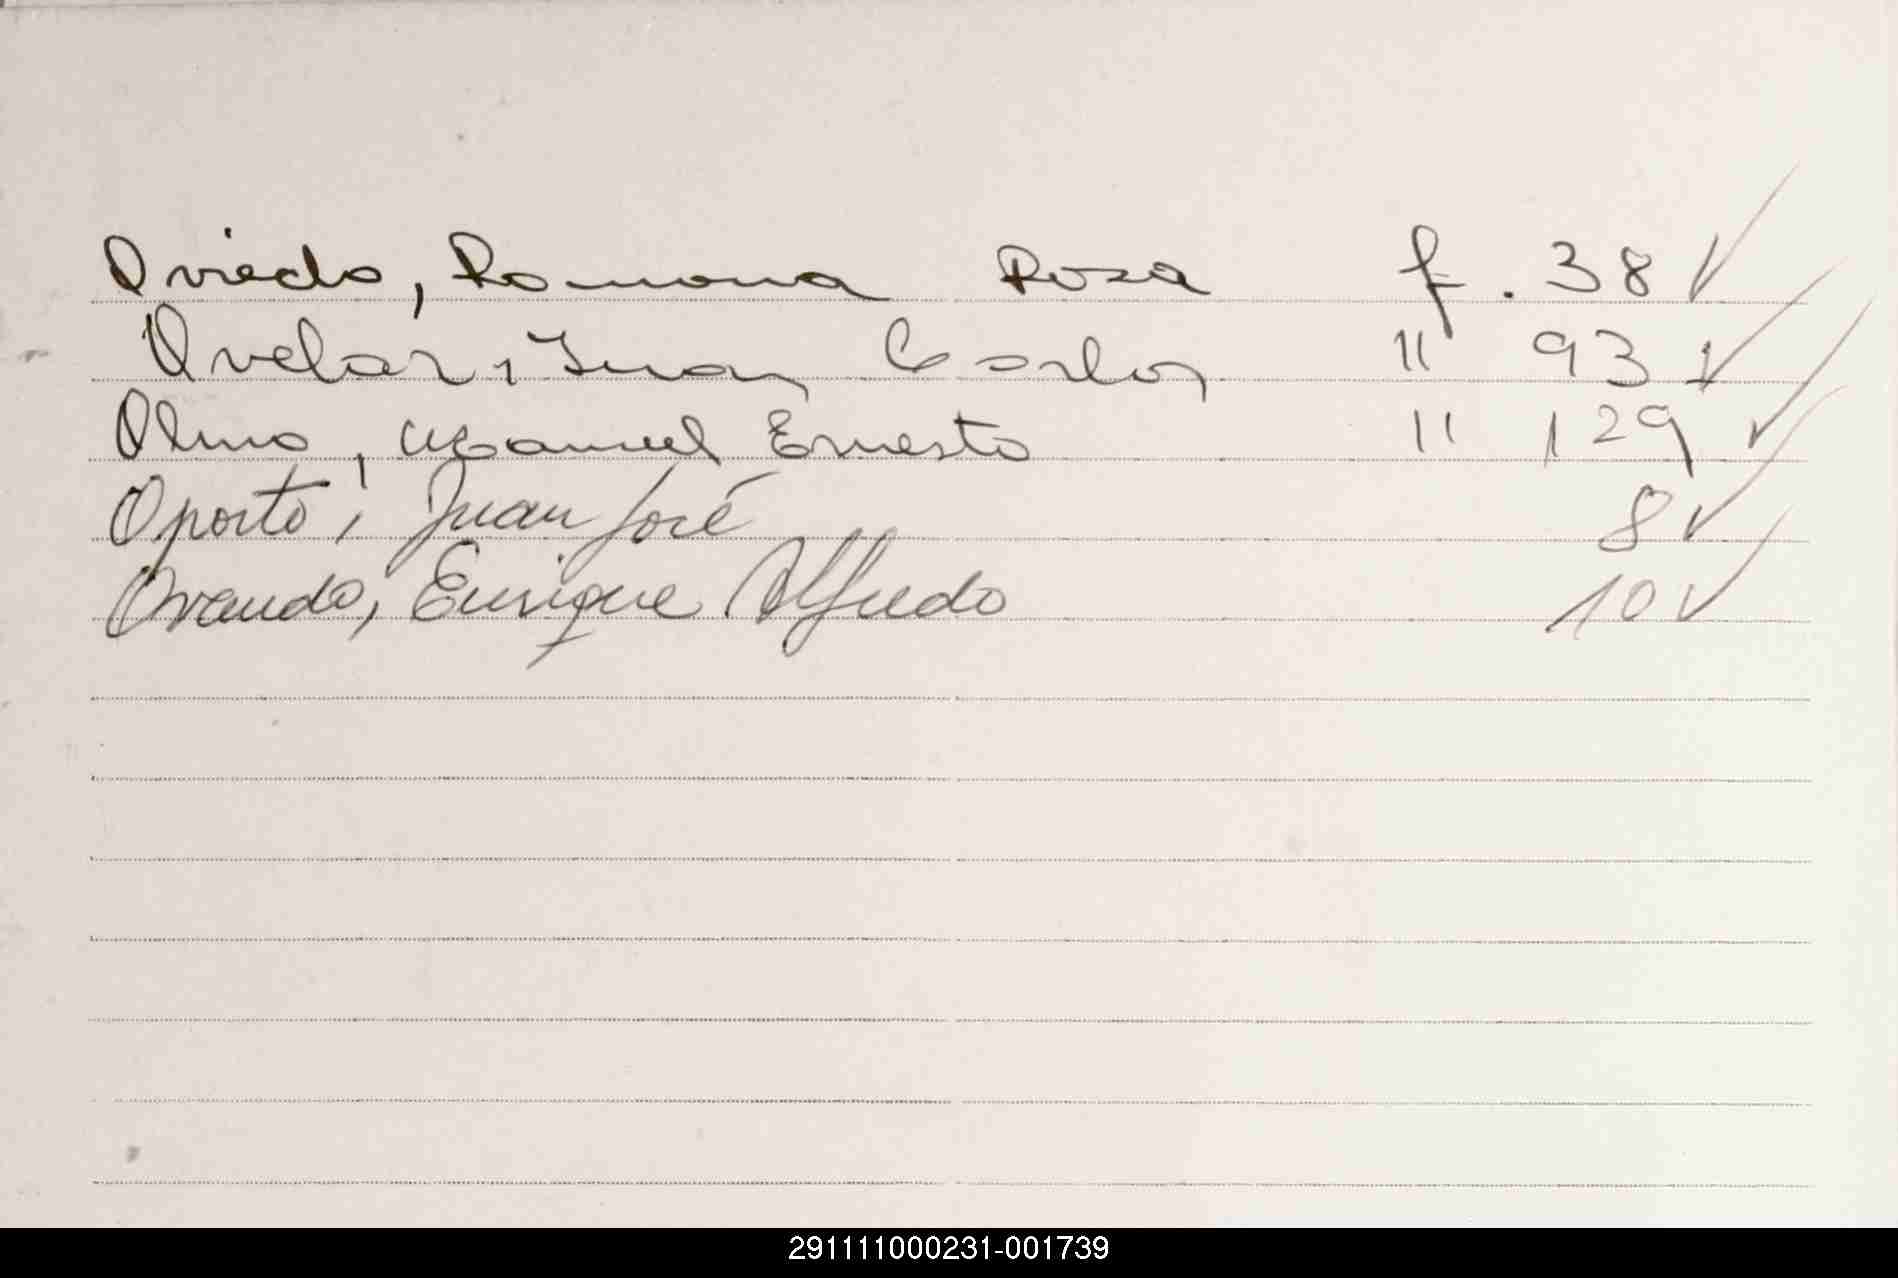 Oviedo, Ramona Rosa f. 38 ✓
Ovelar, Juan Carlos " 93 ✓
Olmo, Manuel Ernesto " 129 ✓
Oporto, Juan José 8 ✓
Ovando, Enrique Alfredo 10 ✓
291111000231-001739